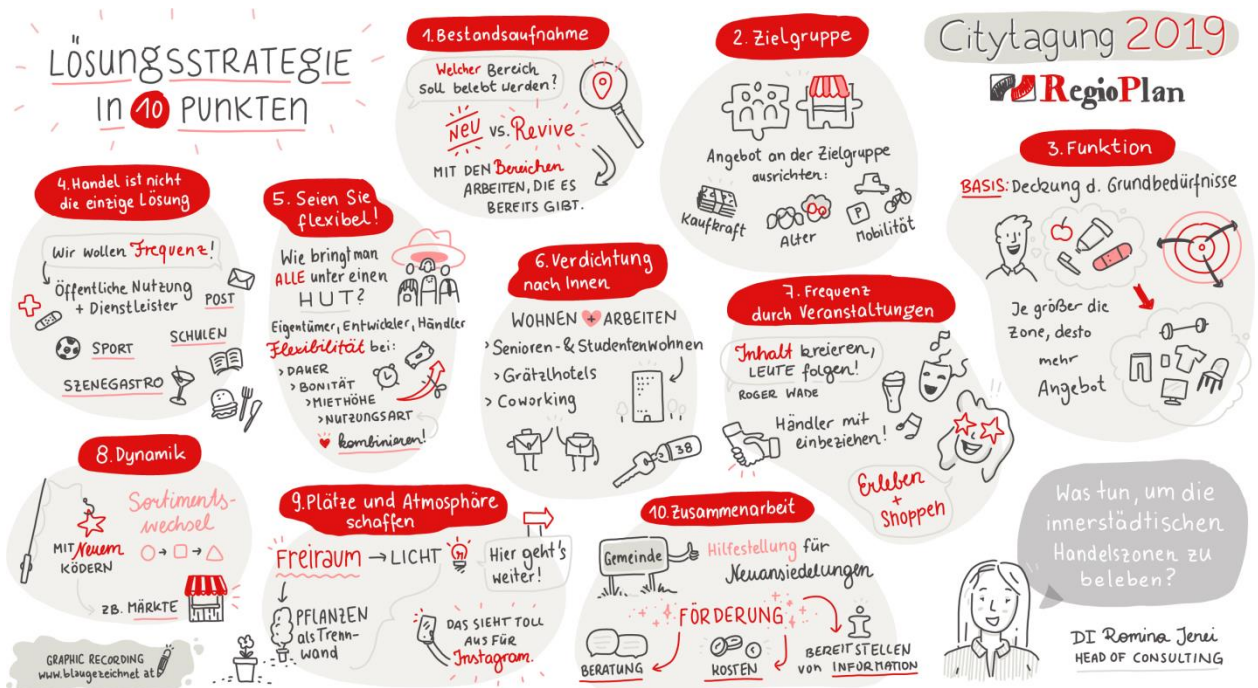 LÖSUNGSSTRATEGIE
IN 10 PUNKTEN
Citytagung 2019
RegioPlan
1. Bestandsaufnahme
Welcher Bereich
soll belebt werden?
NEU vs. Revive
MIT DEN Bereichen
ARBEITEN, DIE ES
BEREITS GIBT.
2. Zielgruppe
Angebot an der Zielgruppe
ausrichten:
Kaufkraft
Alter
P
Mobilität
3. Funktion
BASIS: Deckung d. Grundbedürfnisse
Je größer die
Zone, desto
mehr
Angebot
4. Handel ist nicht
die einzige Lösung
Wir wollen Frequenz!
Öffentliche Nutzung
+ Dienstleister
POST
SPORT
SCHULEN
SZENEGASTRO
5. Seien Sie
flexibel!
Wie bringt man
ALLE unter einen
HUT?
Eigentümer, Entwickler, Händler
Flexibilität bei:
> DAUER
> BONITÄT
> MIETHÖHE
> NUTZUNGSART
kombinieren!
6. Verdichtung
nach Innen
WOHNEN + ARBEITEN
> Senioren- & Studentenwohnen
> Grätzlhotels
> Coworking
38
7. Frequenz
durch Veranstaltungen
Inhalt kreieren,
LEUTE folgen!
ROGER WADE
Händler mit
einbeziehen!
Erleben
+
Shoppen
8. Dynamik
Sortiments-
wechsel
MIT Neuem
KÖDERN
ZB. MÄRKTE
9. Plätze und Atmosphäre
schaffen
Freiraum → LICHT
Hier geht's
weiter!
PFLANZEN
als Trenn-
wand
DAS SIEHT TOLL
AUS FÜR
Instagram.
10. Zusammenarbeit
Gemeinde
Hilfestellung für
Neuansiedelungen
FÖRDERUNG
BERATUNG
KOSTEN
BEREITSTELLEN
von INFORMATION
Was tun, um die
innerstädtischen
Handelszonen zu
beleben?
DI Romina Jenei
HEAD OF CONSULTING
GRAPHIC RECORDING
www.blaugezeichnet.at